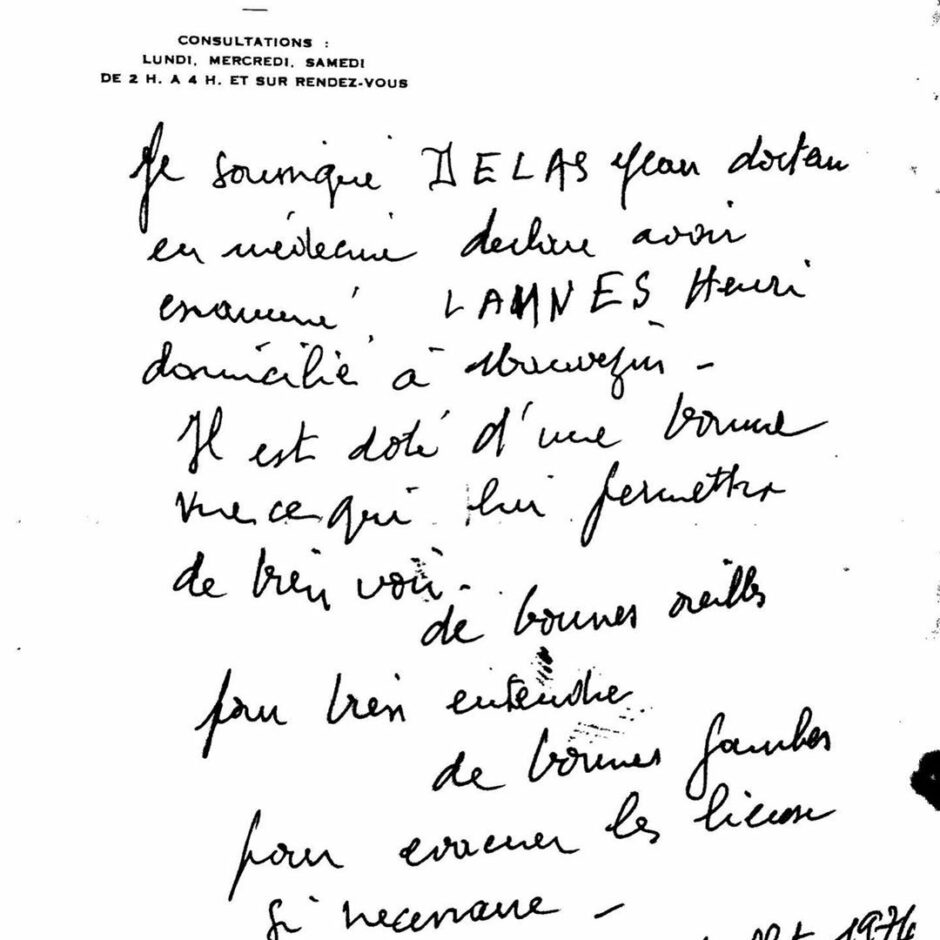 CONSULTATIONS :
LUNDI, MERCREDI, SAMEDI
DE 2 H. A 4 H. ET SUR RENDEZ-VOUS
Je soussigné DELAS Jean docteur
en médecine declare avoir
examiné LAHNES Henri
domicilié à Mauvezin -
Il est doté d'une bonne
vue ce qui lui permettra
de bien voir -
de bonnes oreilles
pour bien entendre
de bonnes jambes
pour evacuer les lieux
si necessaire -